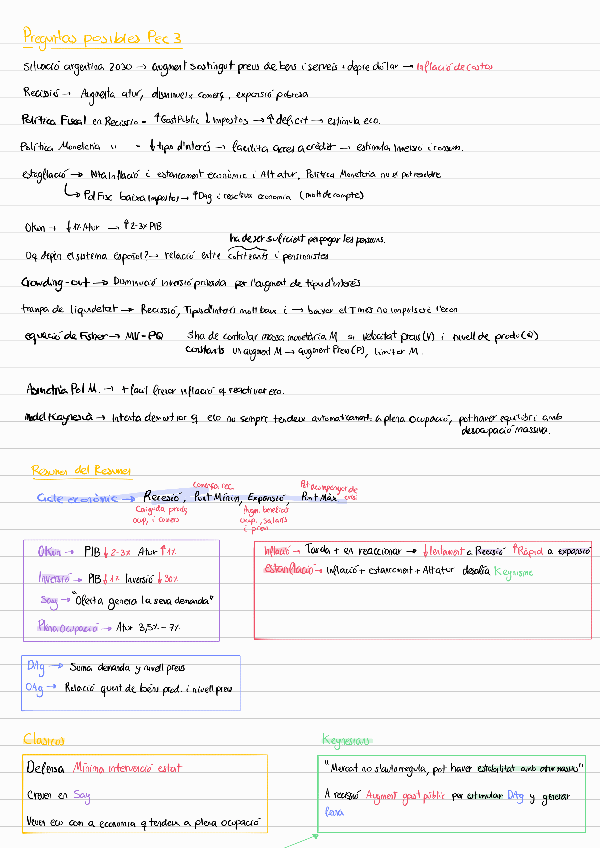 Preguntas posibles Pec 3
Situació argentina 2030 → augment sostingut preus de bens i serveis + depre dólar → Inflació de costos
Recissió → Augmenta atur, disminueix comerç, expansió pobresa
Política Fiscal en Recissio = ↑ Gast Public ↓ Impostos → ↑ déficit → estimula eco.
Política Monetaria " = ↓ tipus d'interés → facilita acces a crèdit → estimula inversio i consum.
estagflació → Alta Inflació i estancament econòmic i Alt atur, Politica Monetaria no el pot resoldre
↳ Pol Fisc baixa impostos → ↑ DAg i reactiva economia (molt de compte)
Okun → ↓ 1% Atur → ↑ 2-3% PIB
ha de ser suficient per pagar les pensions.
Dq depén el sistema español? → relació entre cotitzants i pensionistes
Crowding-out → Disminució inversió privada per l'augment de tipus d'interés
trampa de liquidetat → Recissió, Tipus d'interés molt baix i → baixar el T interes no impulsara l'econ
equació de Fisher → MV=PQ S'ha de controlar massa monetària M si velocitat preus (V) i nivell de produ (Q)
constants un augment M → augment Preus (P), limitar M.
Asimetria Pol M. → + facil frenar inflació q reactivar eco.
Model Keynesià → Intenta demostrar q eco no sempre tendeix automaticament a plena ocupació, pot haver equilibri amb
desocupació massiva.
Resumen del Resumen
comença rec.
Pot acompanyar de crisi
Cicle econòmic → Recesió, Punt Mínim, Expansió, Punt Màx
Caiguda produ, ocup, i comerç
Augm. beneficis ocup., salaris i preus
Okun → PIB ↓ 2-3% Atur ↑ 1%
Inversió → PIB ↓ 1% Inversió ↓ 30%
Say → "Oferta genera la seva demanda"
Plena Ocupació → Atur 3,5% - 7%
Inflació → Tarda + en reaccionar → ↓ lentament a Recesió ↑ Ràpid a expansió
Estanflació → Inflació + estancament + Alt atur desafia Keynisme
DAg → Suma demanda y nivell preus
OAg → Relació quant. de béns prod. i nivell preus
Clasicos
Defensa Mínima intervenció estat
Creuen en Say
Veuen eco com a economia q tendeix a plena ocupació
Keynesians
"Mercat no s'autorregula, pot haver estabilitat amb atur massiu"
A recesió Augment gast públic per estimular DAg y generar
feina